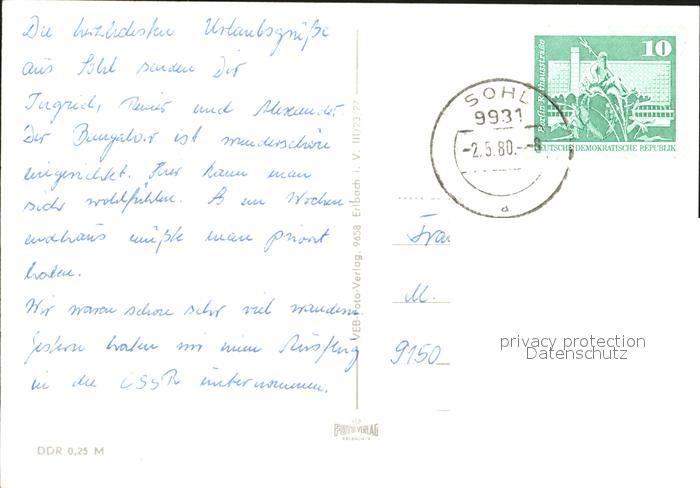 Die herzlichsten Urlaubsgrüße
aus Sohl senden Dir
Ingrid, Reiner und Alexander.
Der Bungalow ist wunderschön
eingerichtet. Hier kann man
sich wohlfühlen. So ein Wochen-
endhaus müßte man privat
haben.
Wir waren schon sehr viel wandern.
Gestern haben wir einen Ausflug
in die ČSSR unternommen.
DDR 0,25 M
VEB Foto-Verlag, 9658 Erlbach i. V. III/23 77
FOTO VERLAG
ERLBACH V.
SOHL
9931
-2.5.80.--8
a
10
Berlin Rathausstraße
DEUTSCHE DEMOKRATISCHE REPUBLIK
Frau
M.
9150
privacy protection
Datenschutz